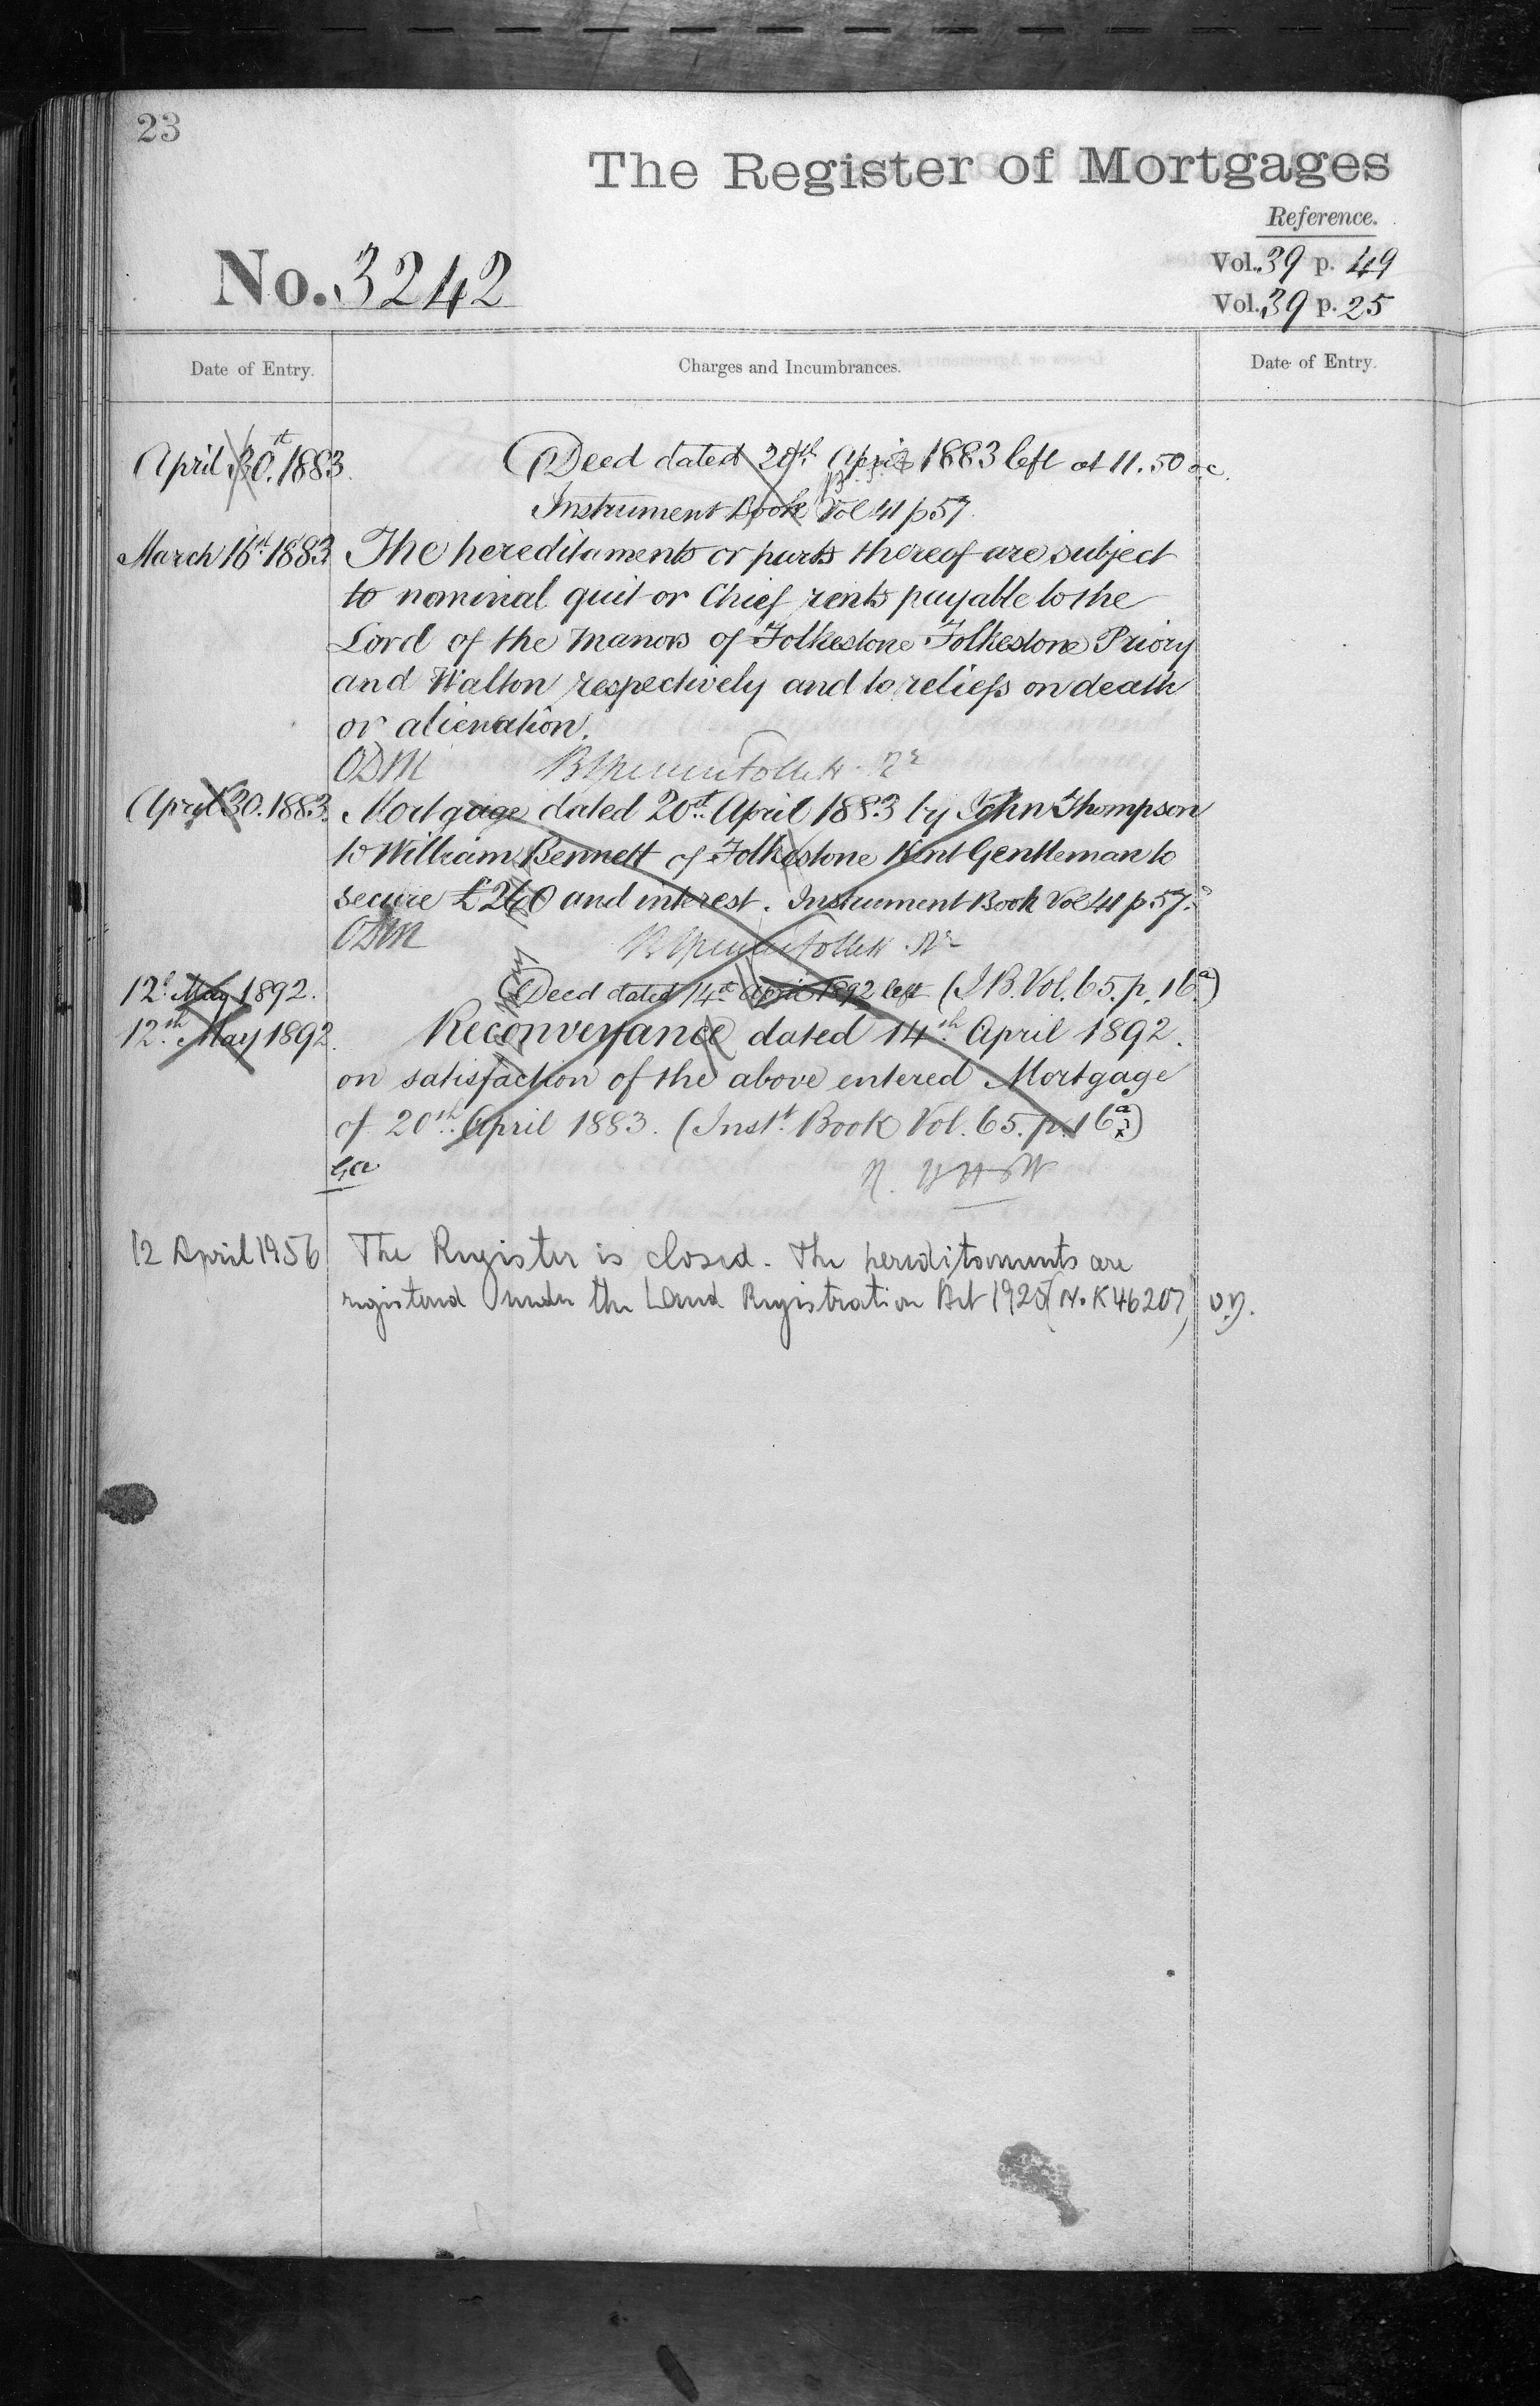 23
The Register of Mortgages
Reference.
No. 3242
Vol. 39 p. 49
Vol. 39 p. 25
Date of Entry.
Charges and Incumbrances.
Date of Entry.
April 30.th 1883.
Deed dated 20th April 1883 left at 11.50
Instrument Book Vol 41 p 57.
March 16th 1883
The hereditaments or parts thereof are subject
to nominal quit or Chief rents payable to the
Lord of the Manors of Folkestone Folkestone Priory
and Walton respectively and to reliefs on death
or alienation.
ODM
April 30. 1883.
Mortgage dated 20th April 1883 by John Thompson
to William Bennett of Folkestone Kent Gentleman to
secure £260 and interest. Instrument Book Vol 41 p 57.
ODM
12th May 1892.
Deed dated 14th April 1892 left (I.B. Vol. 65. p. 16a)
12th May 1892.
Reconveyance dated 14th April 1892.
on satisfaction of the above entered Mortgage
of 20th April 1883. (Inst. Book Vol. 65. p. 16a)
12 April 1956
The Register is closed. The hereditaments are
registered under the Land Registration Act 1925 (No K46207)